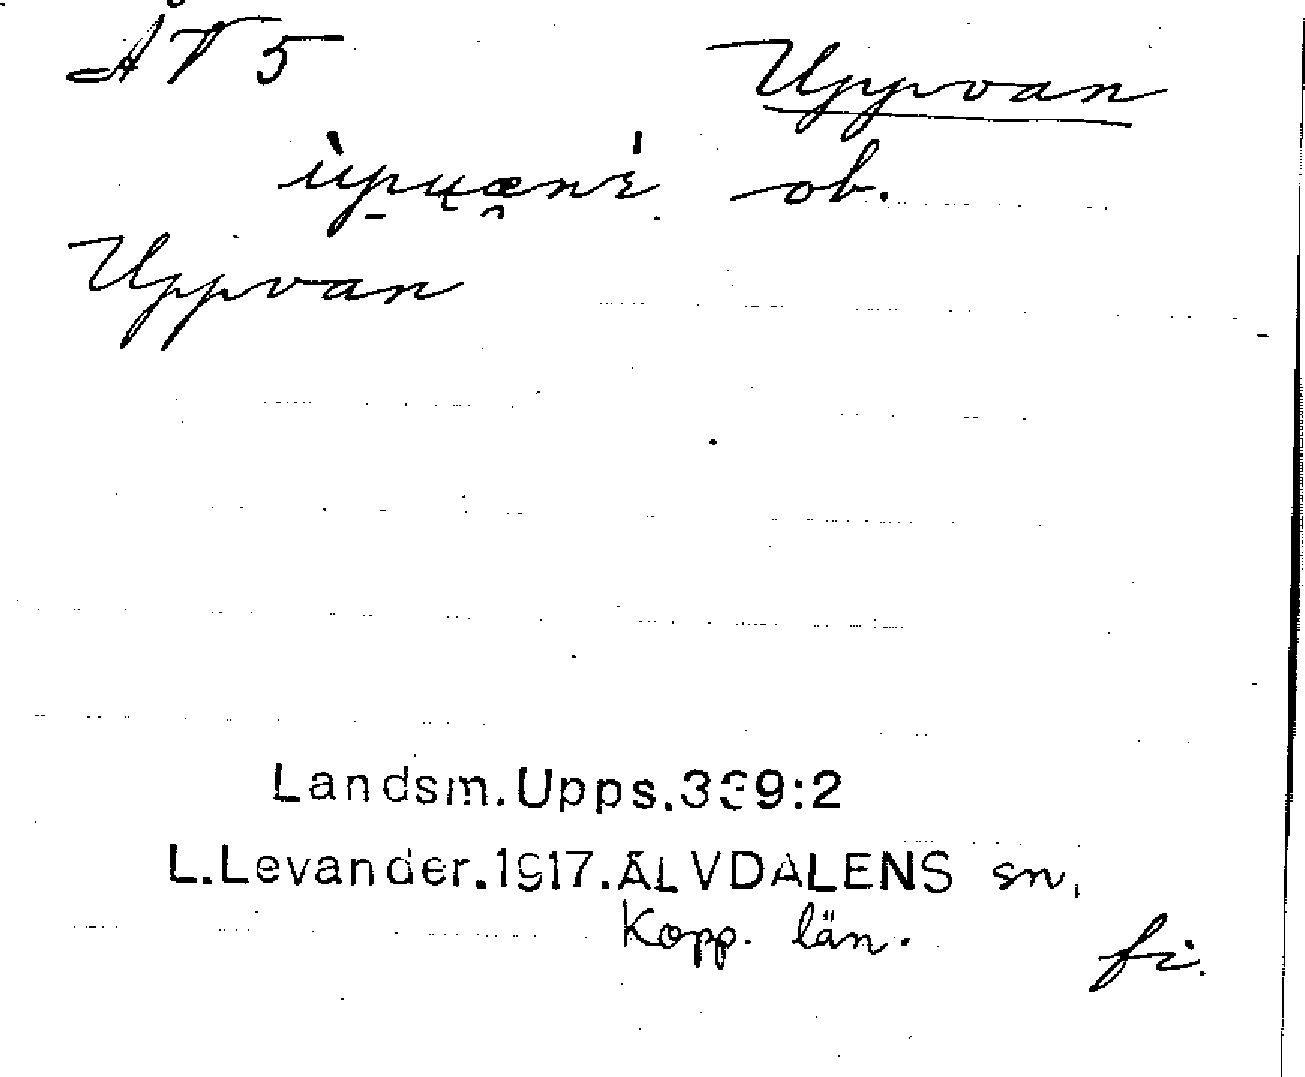 ÅV 5
Uppvan
ob.
Uppvan
Landsm. Upps. 339:2
L. Levander. 1917. ÄLVDALENS sn.
Kopp. län.
fi.